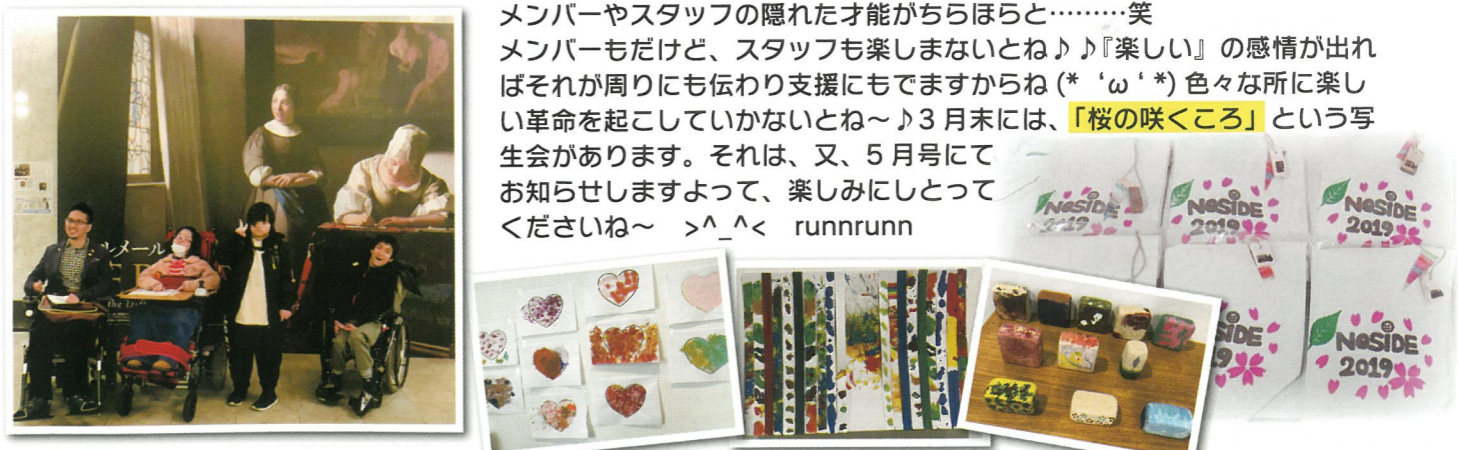 メンバーやスタッフの隠れた才能がちらほらと………笑
メンバーもだけど、スタッフも楽しまないとね♪♪『楽しい』の感情が出れ
ばそれが周りにも伝わり支援にもでますからね (* ‘ω ‘ *) 色々な所に楽し
い革命を起こしていかないとね～♪3 月末には、「桜の咲くころ」という写
生会があります。それは、又、5 月号にて
お知らせしますよって、楽しみにしとって
くださいね～　>^_^<　runnrunn
ルメール
the Li
NoSIDE
2019
NoSIDE
2019
NoSIDE
2019
SIDE
2019
NoSIDE
2019